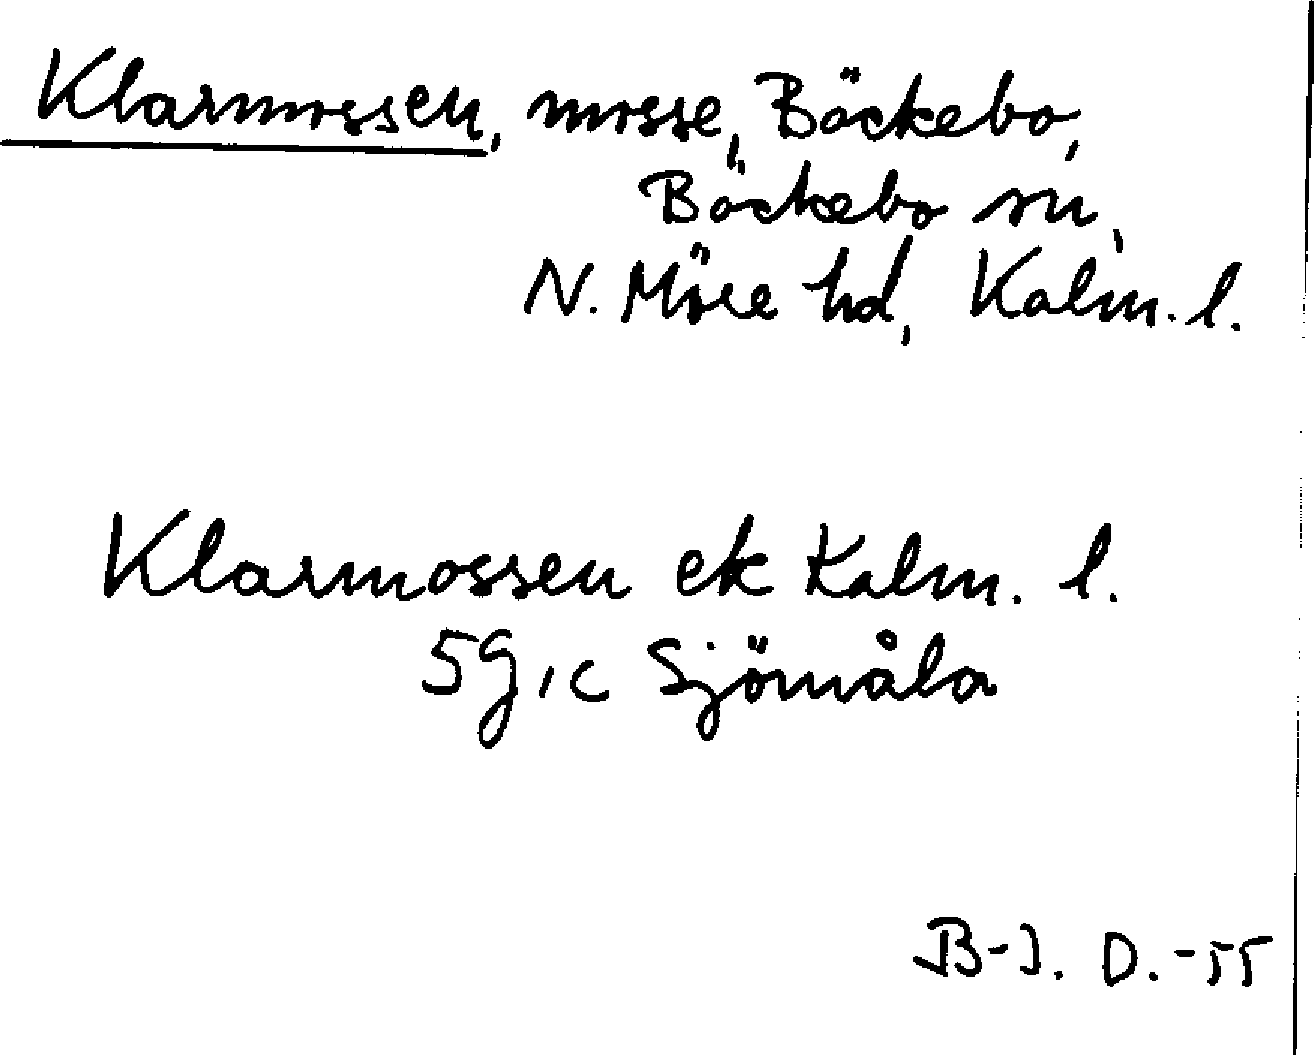 Klarmossen, mosse, Bäckebo,
Bäckebo sn,
N. Möre hd, Kalm. l.
Klarmossen ek Kalm. l.
5g, c Sjömåla
B-J. D. -55